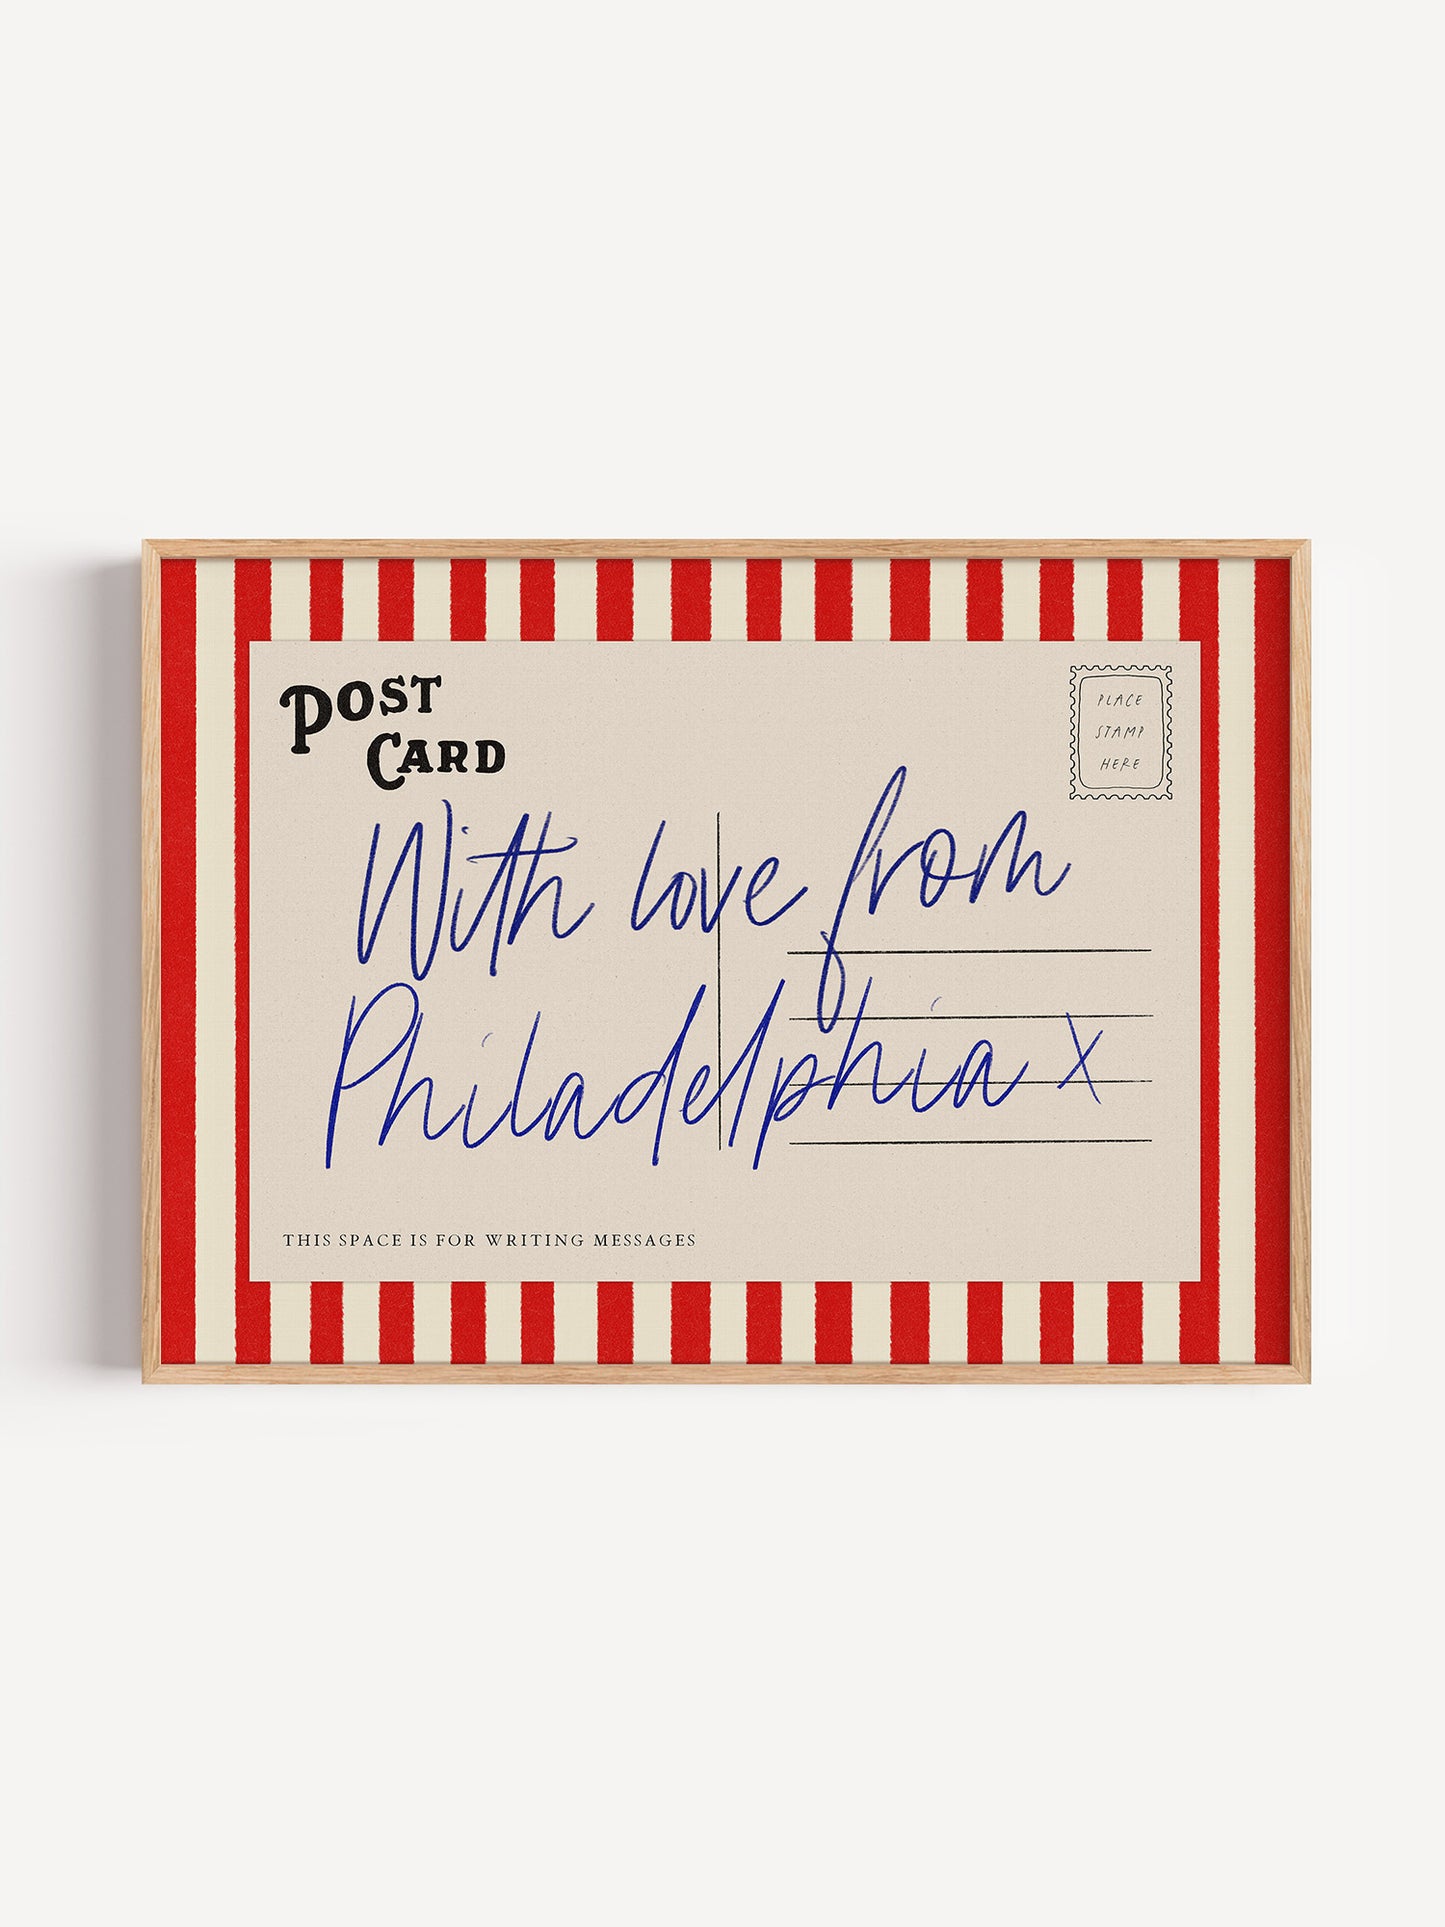 POST
CARD
PLACE
STAMP
HERE
With love from
Philadelphia x
THIS SPACE IS FOR WRITING MESSAGES